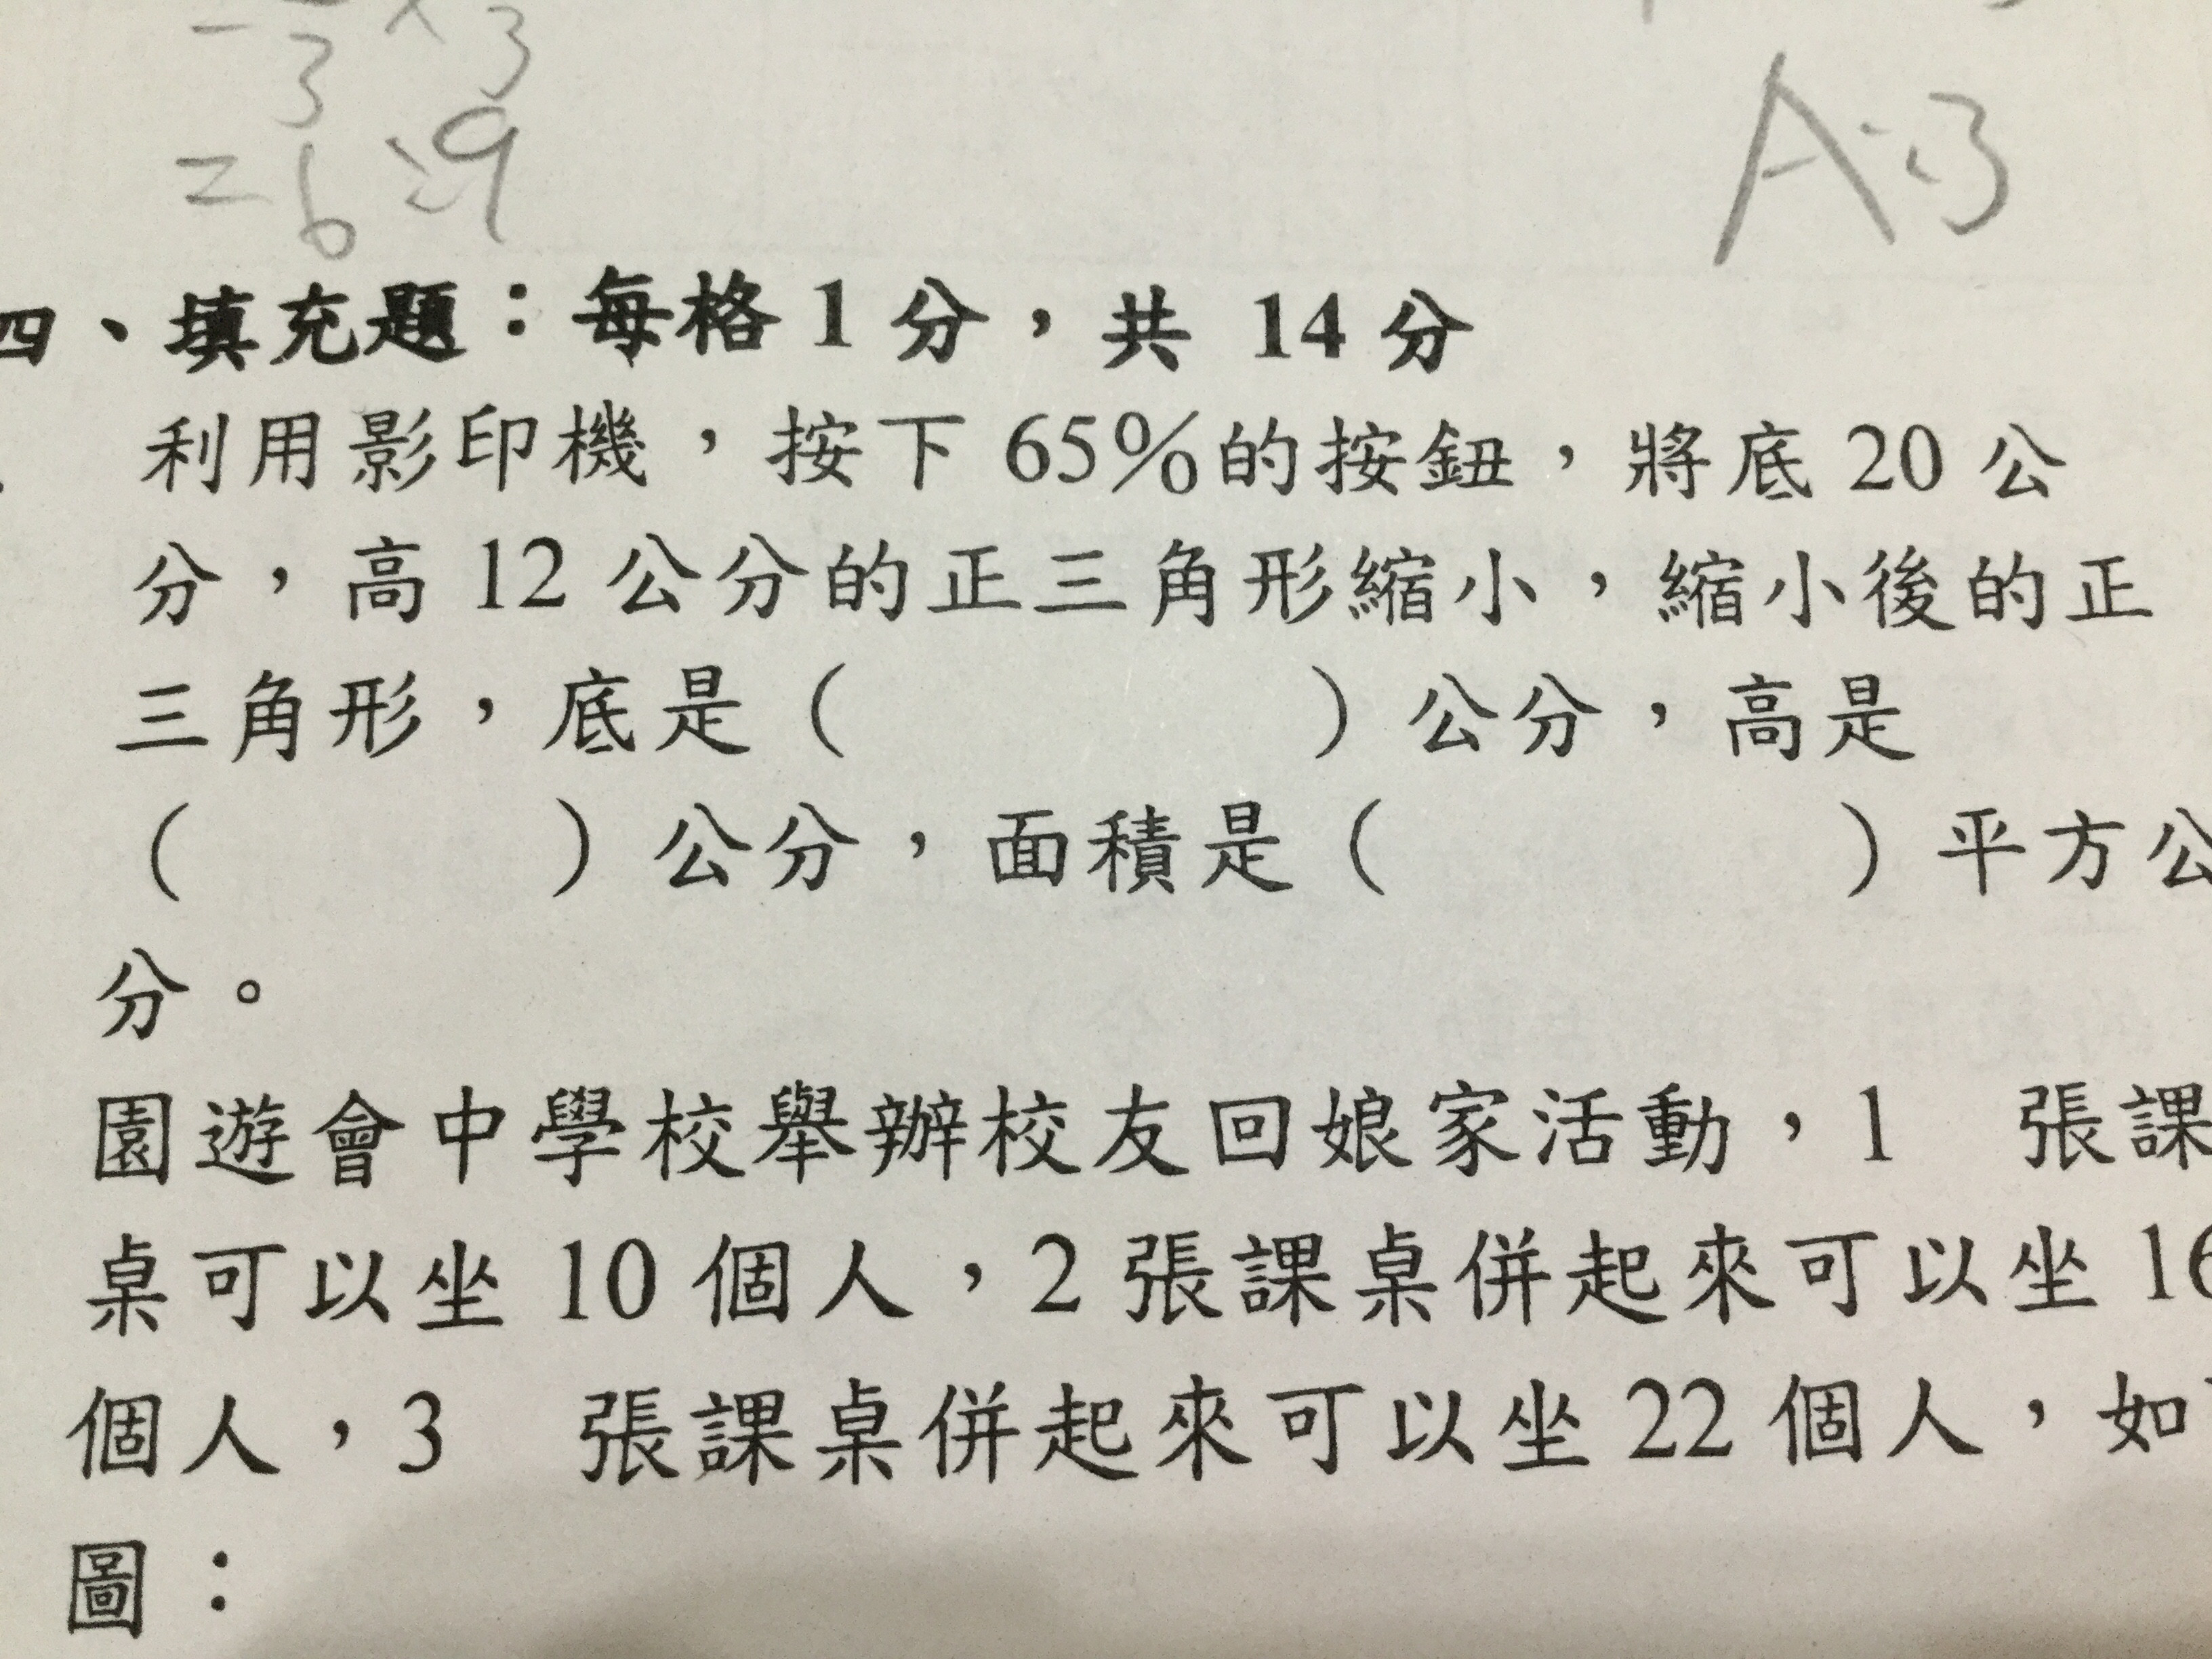 3 × 3
= 6 : 9
A : 3
四、填充題：每格 1 分，共 14 分
利用影印機，按下 65%的按鈕，將底 20 公
分，高 12 公分的正三角形縮小，縮小後的正
三角形，底是（ ）公分，高是
（ ）公分，面積是（ ）平方公
分。
園遊會中學校舉辦校友回娘家活動，1 張課
桌可以坐 10 個人，2 張課桌併起來可以坐 16
個人，3 張課桌併起來可以坐 22 個人，如
圖：